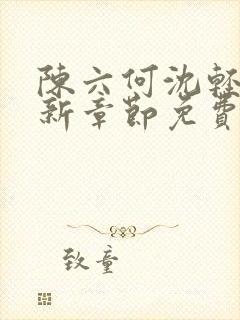 陳六何沈輕
新章節免費
致童